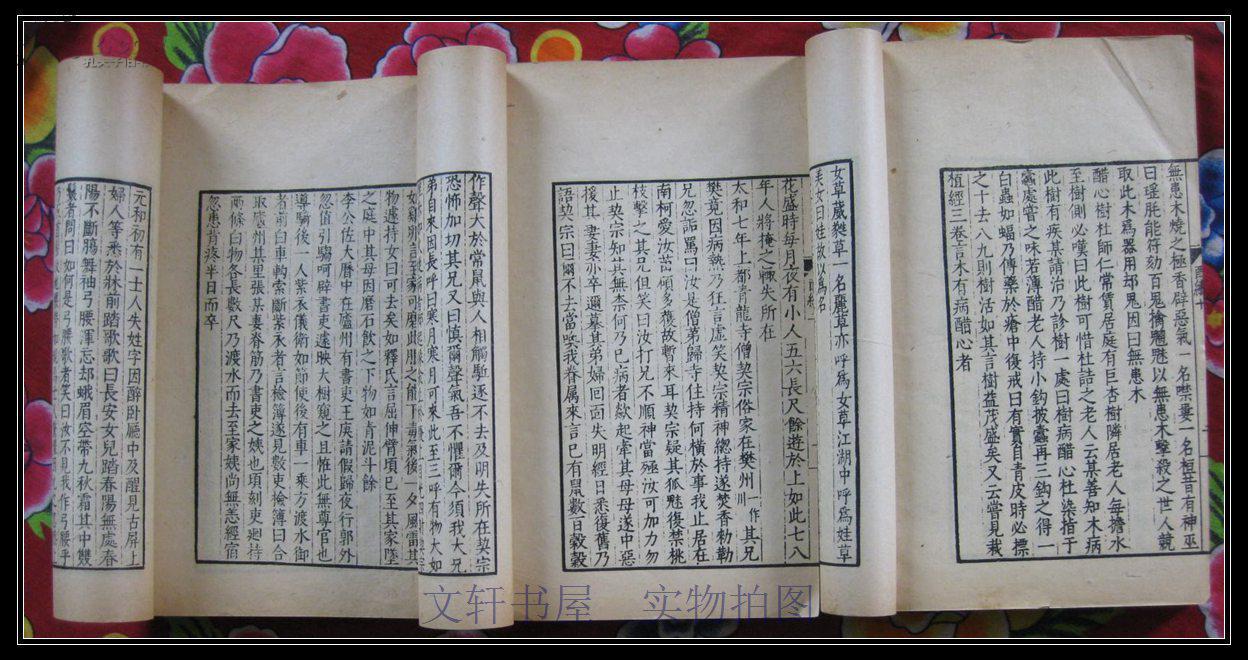 無患木燒之極香辟惡氣一名噤婁一名桓昔有神巫
曰瑶眊能符劾百鬼擒魑魅以無患木擊殺之世人競
取此木爲器用却鬼因曰無患木
醋心樹杜師仁常賃居庭有巨杏樹隣居老人每擔水
至樹側必嘆曰此樹可惜杜詰之老人云某善知木病
此樹有疾某請治乃診樹一處曰樹病醋心杜染指于
蠹處嘗之味若薄醋老人持小鈎披蠹再三鈎之得一
白蟲如蝠乃傅藥於瘡中復戒曰有實自青皮時必摽
之十去八九則樹活如其言樹益茂盛矣又云嘗見栽
植經三卷言木有病醋心者
女草葳蕤草一名麗草亦呼爲女草江湖中呼爲娃草
美女曰娃故以爲名
花盛時每月夜有小人五六長尺餘遊於上如此七八
年人將掩之輙失所在
太和七年上都青龍寺僧契宗俗家在樊州一作訓其兄
樊竟因病熱乃狂言虛笑契宗精神總持遂焚香勑勒
兄忽詬罵曰汝是僧弟歸寺住持何橫於事我止居在
南柯愛汝苗碩多穫故暫來耳契宗疑其狐魅復禁桃
枝擊之其兄但笑曰汝打兄不順神當殛汝可加力勿
止契宗知其無柰何乃已病者欻起牽其母母遂中惡
援其妻妻亦卒邇摹其弟婦回面失明經日悉復舊乃
語契宗曰爾不去當喚我眷属來言已有鼠數百穀穀
作聲大於常鼠與人相觸駈逐不去及明失所在契宗
恐怖加切其兄又曰慎爾聲氣吾不懼爾今須我大兄
弟自來因長呼曰寒月寒月可來此至三呼有物大如
如鷄卵言至家可磨此服之能下毒氣後一夕風雷其
物遽持女曰可去矣如釋氏言屈伸臂頃已至其家墜
之庭中其母因磨石飲之下物如青泥斗餘
李公佐大曆中在廬州有書吏王庚請假歸夜行郭外
忽值引騶呵辟書吏遽映大樹窺之且恠此無尊官也
導騎後一人紫衣儀衛如節使後有車一乘方渡水御
者前白車軥索斷紫衣者言檢簿遂見數吏檢簿曰合
取廬州某里張某妻脊筋乃書吏之姨也頃刻吏廻持
兩條白物各長數尺乃渡水而去至家姨尚無恙經宿
忽患背疼半日而卒
元和初有一士人失姓字因醉臥廳中及醒見古屏上
婦人等悉於牀前踏歌歌曰長安女兒踏春陽無處春
陽不斷腸舞袖弓腰渾忘却蛾眉空帶九秋霜其中雙
鬟者問曰如何是弓腰歌者笑曰汝不見我作弓腰乎
文轩书屋 实物拍图